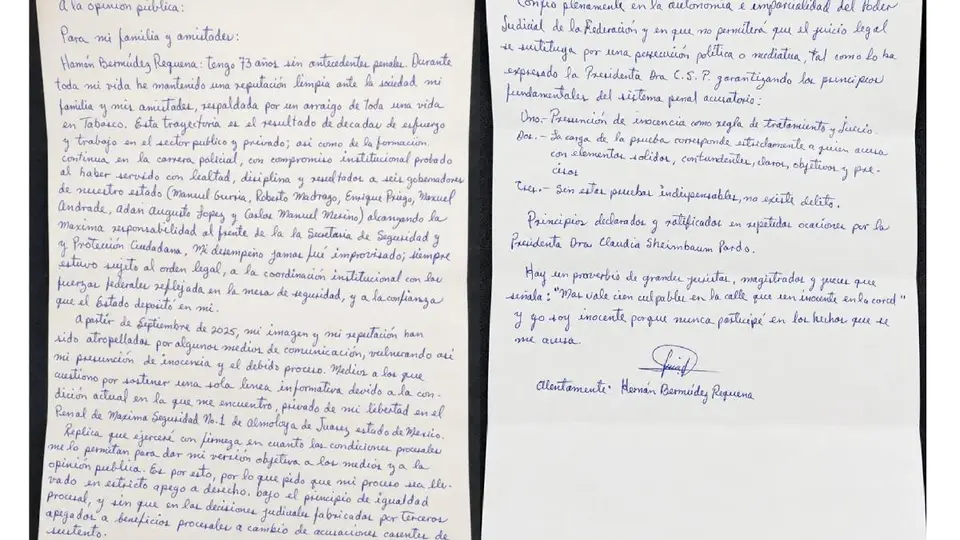 A la opinión pública:
Para mi familia y amistades:
Hamán Bermúdez Requena: tengo 73 años sin antecedentes penales. Durante
toda mi vida he mantenido una reputación limpia ante la saciedad mi
familia y mis amistades, respaldada por un arraigo de toda una vida
en Tabasco. Esta trayectoria es el resultado de decadas de esfuerzo
y trabajo en el sector publico y privado; asi como de la formación
continua en la carrera policial, con compromiso institucional probado
al haber servido con lealtad, disciplina y resultados a seis gobernadores
de nuestro estado (Manuel Gurria, Roberto Madrazo, Enrique Priego, Manuel
Andrade, Adán Augusto Lopez y Carlos Manuel Merino) alcanzando la
maxima responsabilidad al frente de la la Secretaria de Seguridad y
y Protección Ciudadana, Mi desempeño jamas fué improvisado; siempre
estuvo sujeto al orden legal, a la coordinación institucional con las
fuerzas federales reflejada en la mesa de seguridad, y a la confianza
que el Estado depositó en mi.
Apartir de Septiembre de 2025, mi imagen y mi reputación han
sido atropelladas por algunos medios de comunicación, vulnerando asi
mi presunción de inocencia y el debido proceso. Medios a los que
cuestiono por sostener una sola linea informativa devido a la con-
dición actual en la que me encuentro, privado de mi libertad en el
Penal de Maxima Seguridad No.1 de Almoloya de Juarez, estado de Mexico.
Replica que ejerceré con firmeza en cuanto las condiciones procesales
me lo permitan para dar mi versión objetiva a los medios y a la
opinión publica. Es por esto, por lo que pido que mi proceso sea lle-
vado en estricto apego a derecho, bajo el principio de igualdad
procesal, y sin que en las decisiones judiciales fabricadas por terceros
apegados a beneficios procesales a cambio de acusaciones carentes de
sustento.
Confio plenamente en la autonomia e imparcialidad del Poder
Judicial de la Federación y en que no permitirá que el juicio legal
se sustituya por una persecución politica o mediatica, tal como lo ha
expresado la Presidenta Dra C.S.P. garantizando los principios
fundamentales del sistema penal acusatorio:
Uno.- Presunción de inocencia como regla de tratamiento y Juicio.
Dos.- La carga de la prueba corresponde estrictamente a quien acusa
con elementos solidos, contundentes, claros, objetivos y pre-
cisos
Tres.- Sin estas pruebas indispensables, no existe delito.
Principios declarados y ratificados en repetidas ocaciones por la
Presidenta Dra Claudia Sheimbaum Pardo.
Hay un proverbio de grandes juristas, magistrados y jueces que
señala: "Mas vale cien culpables en la calle que un inocente en la carcel"
y yo soy inocente porque nunca participé en los hechos que se
me acusa.
Atentamente. Hernán Bermúdez Requena